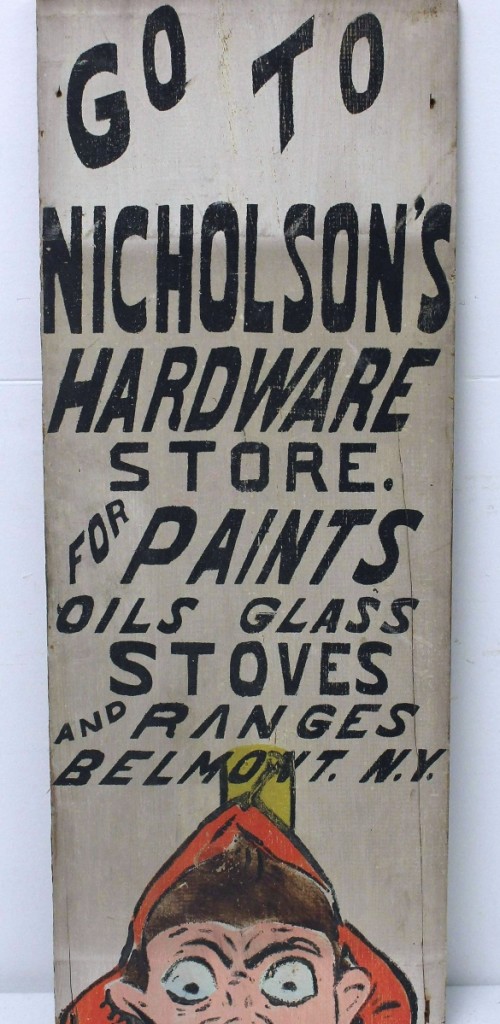 GO TO
NICHOLSON'S
HARDWARE
STORE.
FOR PAINTS
OILS GLASS
STOVES
AND RANGES
BELMONT. N.Y.